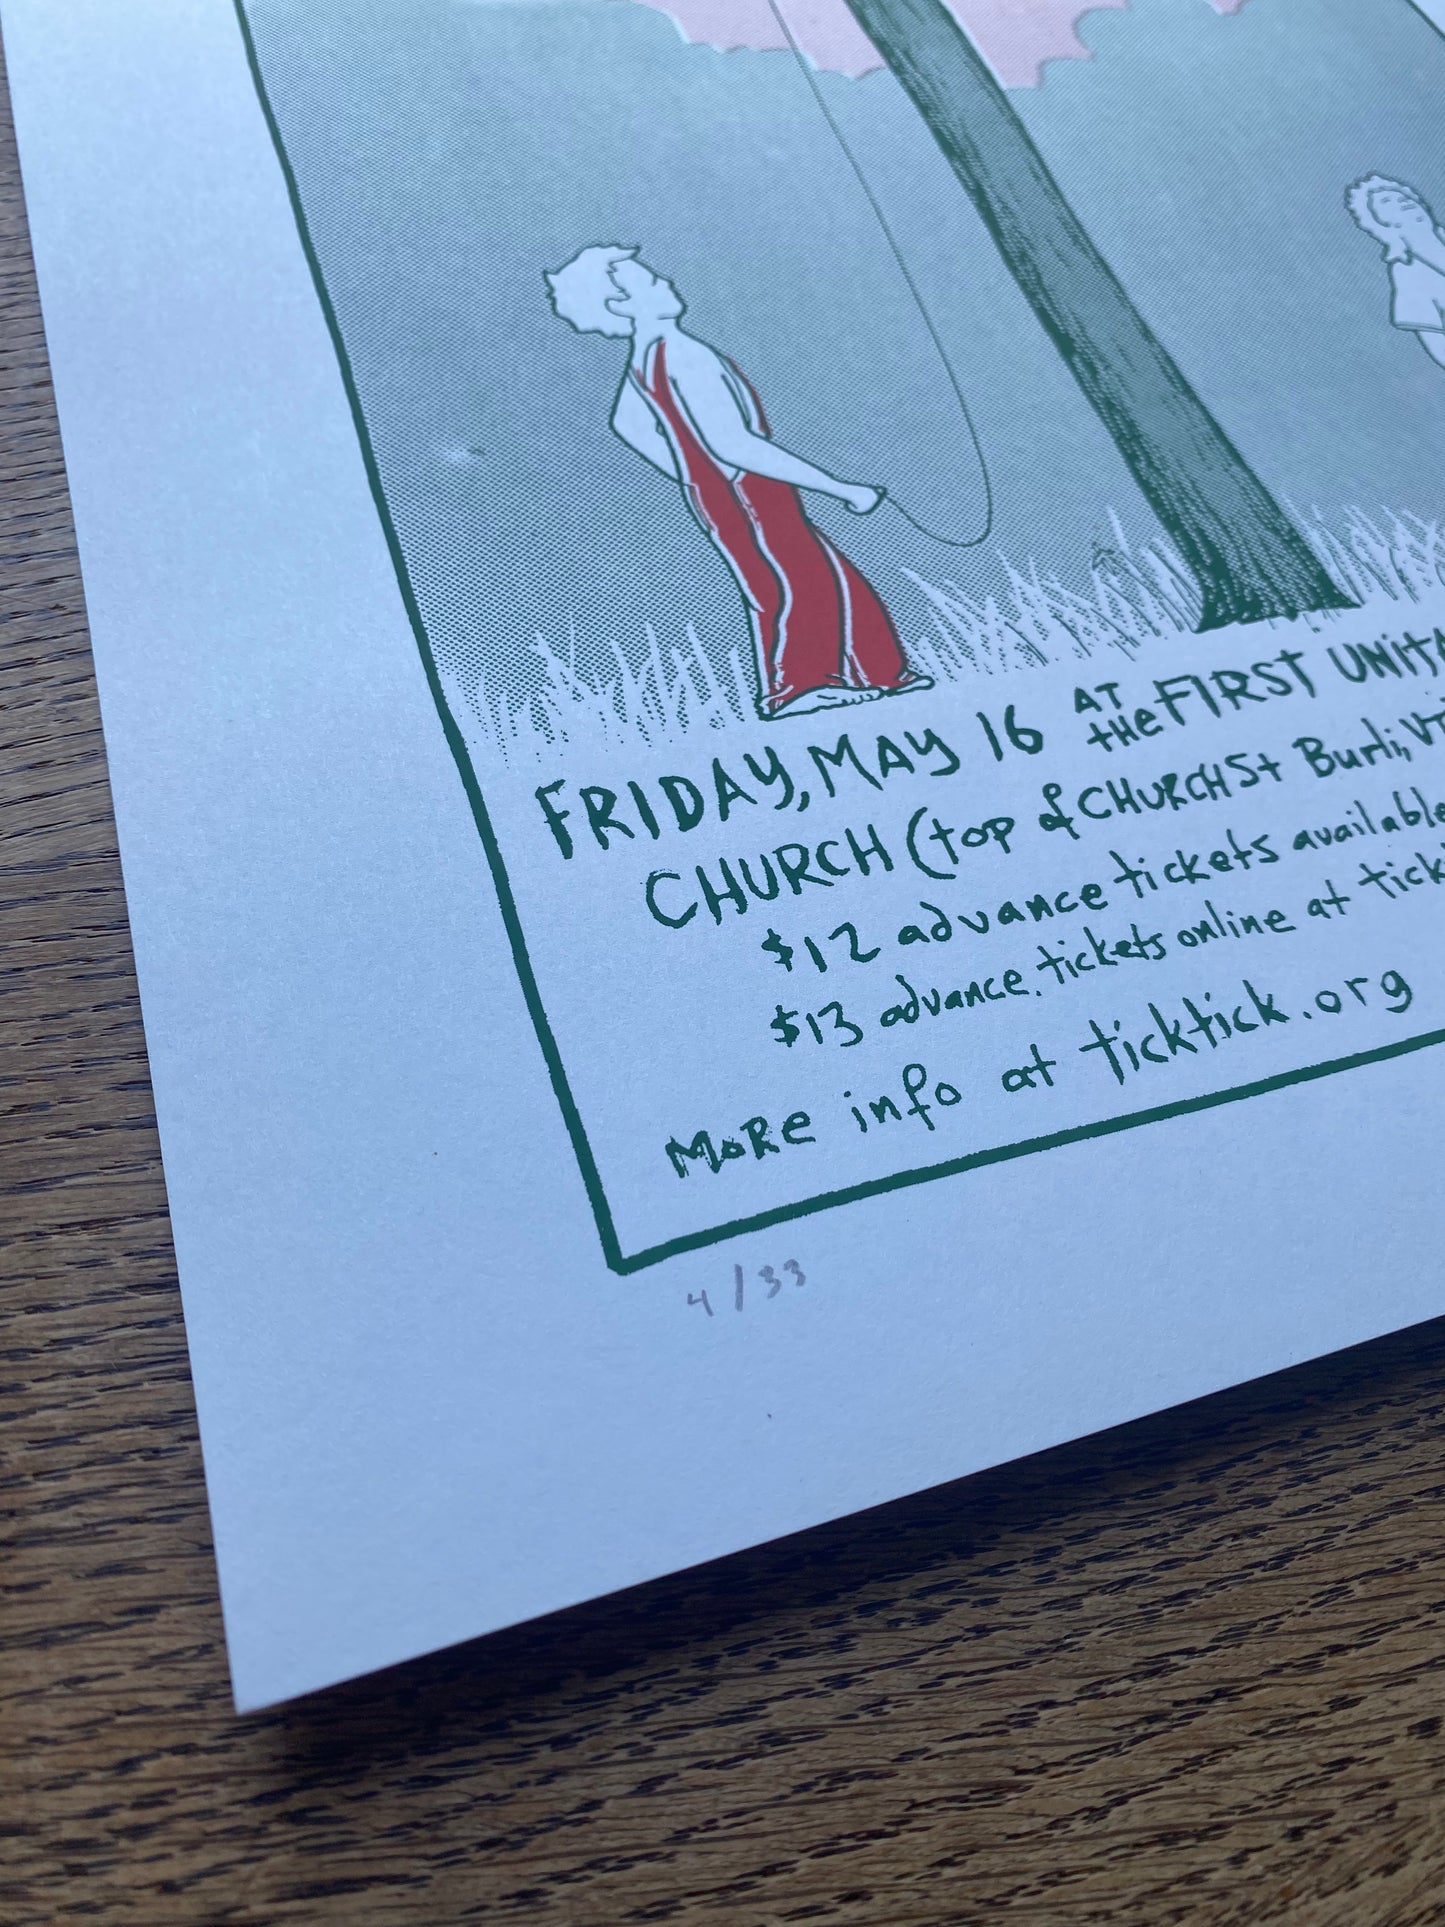 FRIDAY, MAY 16 AT tHe FIRST UNITA
CHURCH (top of CHURCH St Burli, VT
$12 advance tickets available
$13 advance tickets online at tick
MoRe info at ticktick.org
4/33